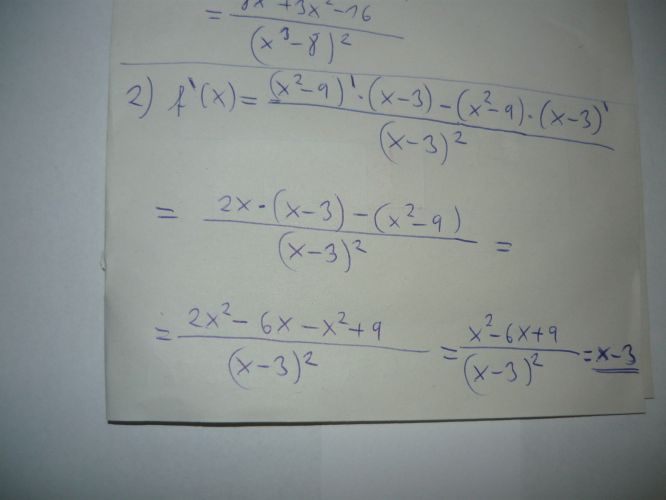 = 8x + 3x² - 16 / (x³ - 8)²
2) f'(x) = (x² - 9)' · (x - 3) - (x² - 9) · (x - 3)' / (x - 3)²
= 2x · (x - 3) - (x² - 9) / (x - 3)² =
= 2x² - 6x - x² + 9 / (x - 3)² = x² - 6x + 9 / (x - 3)² = x - 3